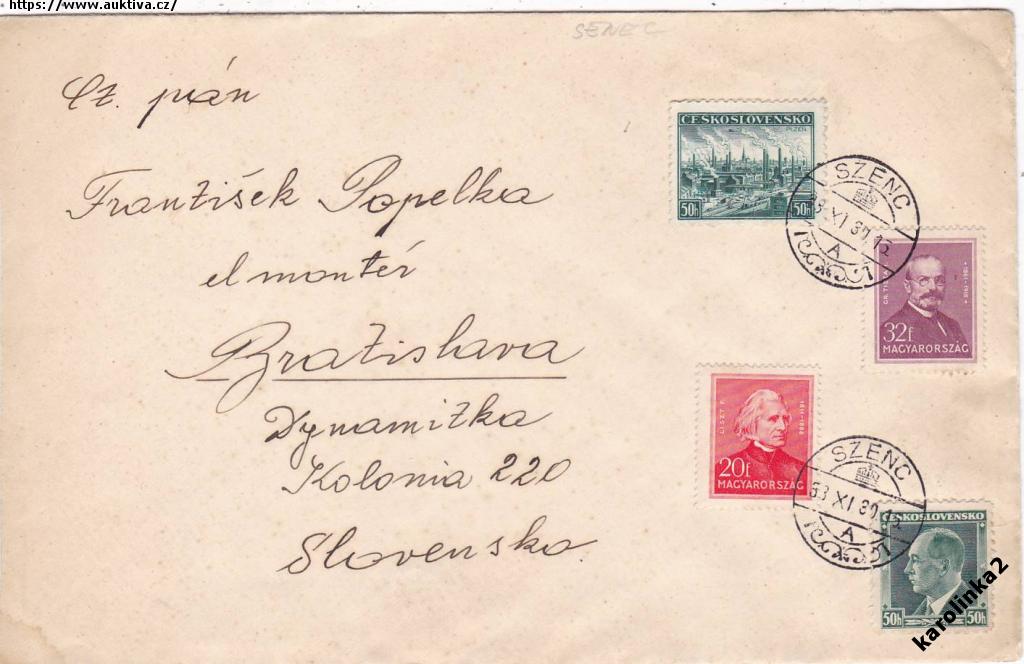 https://www.auktiva.cz/
SENEC
Ct. pián
František Popelka
elmontér
Bratislava
Dynamitka
Kolonia 220
Slovensko
ČESKOSLOVENSKO
PLZEŇ
50h 50h
SZENC
38 XI 30.12
A
32f
MAGYARORSZÁG
LISZT F. 1811-1886
20f
MAGYARORSZÁG
SZENC
38 XI 30.12
A
ČESKOSLOVENSKO
50h 50h
karolinka2